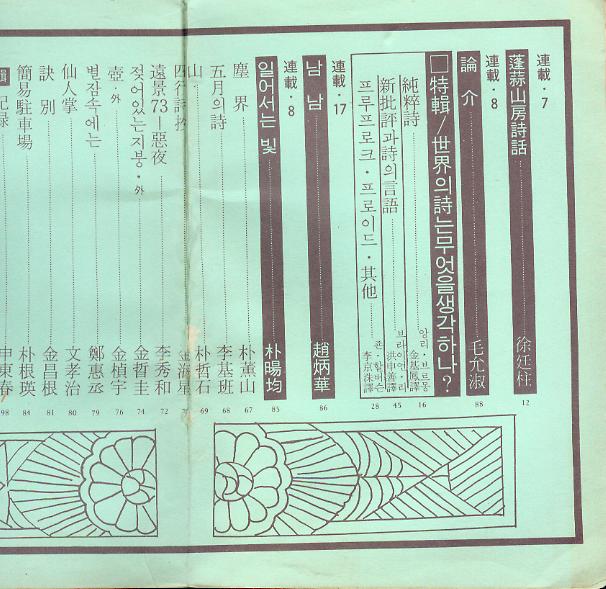 連載・7
蓬蒜山房詩話 徐廷柱 12
連載・8
論介 毛允淑 88
□特輯/世界의詩는무엇을생각하나?
純粹詩 앙리・브르몽 金基鳳譯 16
新批評과詩의言語 브라이언・리 洪申善譯 45
프루프로크・프로이드・其他 죤・할버슨 李京洙譯 28
連載・17
남남 趙炳華 86
連載・8
일어서는 빛 朴暘均 85
塵界 朴薰山 67
五月의詩 李基班 68
山 朴哲石 69
四行詩抄 金海星
遠景73—惡夜 李秀和 72
젖어있는지붕・外 金哲圭 74
壺・外 金楨宇 76
별잔속에는 鄭惠丞 79
仙人掌 文孝治 80
訣別 金昌根 81
簡易駐車場 朴根瑛 84
記錄 申東春 98